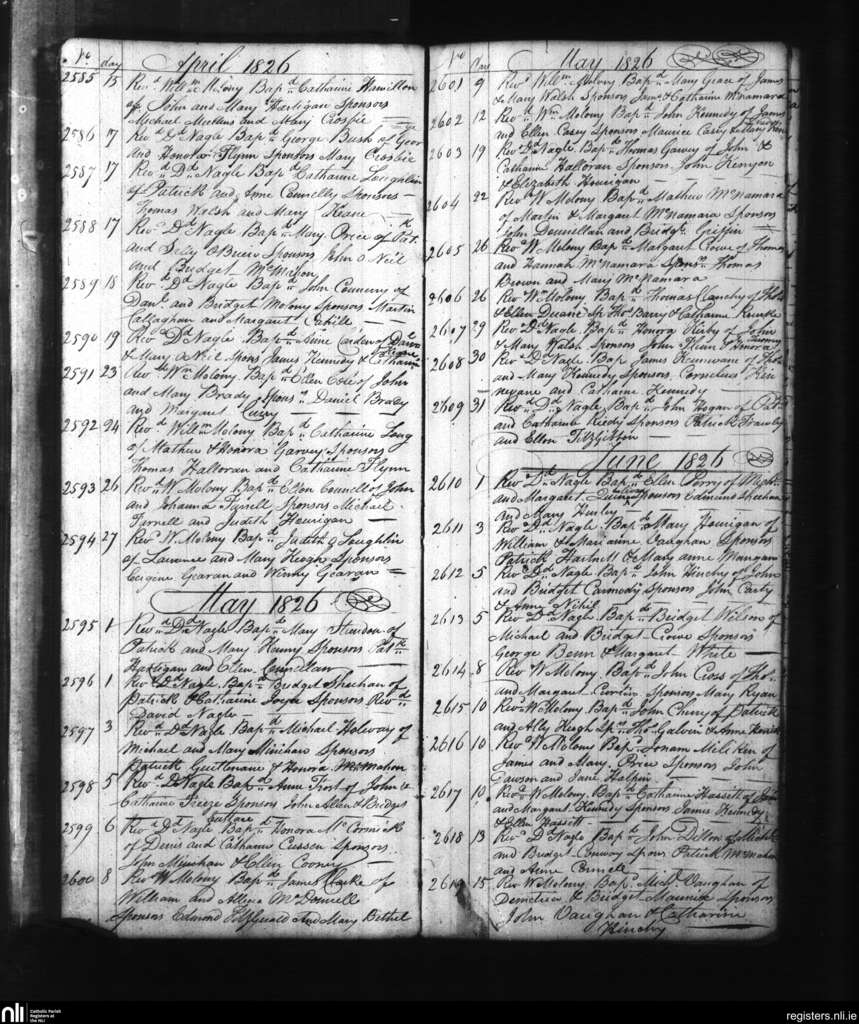 No. day April 1826
2585 15 Revd. Willm. Molony Bapd. Catharine Hamilton
of John and Mary Hartigan Sponsors
Michael Mullins and Mary Crosbie
2586 17 Revd. Dd. Nagle Bapd. George Bush of Geor
ge
and Honora Flynn Sponsors Mary Crosbie
2587 17 Revd. Dd. Nagle Bapd. Catharine Loughlin
of Patrick and Anne Connelly Sponsors
Thomas Walsh and Mary Keane
2588 17 Revd. Dd. Nagle Bapd. Mary Price of Patk.
and Selly O Brien Sponsors John O Neil
and Bridget McMahon
2589 18 Revd. Dd. Nagle Bapd. John Connerny of
Danl. and Bridget Molony Sponsors Martin
Callaghan and Margaret Cahill
2590 19 Revd. Dd. Nagle Bapd. Anne Carden of
& Mary O Neil Spons James Kennedy & Catharine
2591 23 Revd. Wm. Molony Bapd. Ellen Cole of John
and Mary Brady Sponsr. Daniel Brady
and Margaret
2592 24 Revd. Willm. Molony Bapd. Catharine Long
of Mathew & Honora Garvey Sponsors
Thomas Halloran and Catharine Flynn
2593 26 Revd. W Molony Bapd. Ellen Connell of John
and Johanna Farrell Sponsors Michael
Farrell and Judith Hourigan
2594 27 Revd. W. Molony Bapd. Judith O Loughlin
of Laurence and Mary Keogh Sponsors
Eugene Gearan and Winny Gearan
May 1826
2595 1 Revd. Dd. Nagle Bapd. Mary
of
Patrick and Mary Henny Sponsors Patk.
Hartigan and Ellen
2596 1 Revd. Dd. Nagle Bapd. Bridget Sheehan of
Patrick & Catharine Joyce Sponsors Revd.
David Nagle
2597 3 Revd. Dd. Nagle Bapd. Michael Holoway of
Michael and Mary Minihan Sponsors
Patrick & Honora McMahon
2598 5 Revd. D Nagle Bapd. Anne Frost of John &
Catharine Freeze Sponsors John Allen & Bridget
2599 6 Revd. Dd. Nagle Bapd. Honora McCormick
of Denis and Catharine Cussen Sponsors
John & Ellen Cooney
2600 8 Revd. W Molony Bapd. James Clarke of
William and Alley McDonnell
Sponsors Edmond Fitzgerald and Mary Bethel
No. Day May 1826
2601 9 Revd. Willm. Molony Bapd. Mary Grace of James
& Mary Walsh Sponsors Jams. & Catharine McNamara
2602 12 Revd. Wm. Molony Bapd. John Kennedy of James
and Ellen Casey Sponsors Maurice Casey & Mary
2603 19 Revd. Dd. Nagle Bapd. Thomas Garvey of John &
Catharine Halloran Sponsors John Kenyon
& Elizabeth Hourigan
2604 22 Revd. W Molony Bapd. Mathew McNamara
of Martin & Margaret McNamara Sponsors
John Dounellan and Bridgt. Griffin
2605 26 Revd. W. Molony Bapd. Margaret Crowe of Thomas
and Hannah McNamara Sponsrs. Thomas
Brown and Mary McNamara
2606 26 Revd. Wm. Molony Bapd. Thomas Clanchy of Thos.
& Ellen Duane Sp. Thos. Barry & Catharine
2607 29 Revd. Dd. Nagle Bapd. Honora Kirby of John
& Mary Walsh Sponsors John Kein & Honora
Twomy
2608 30 Revd. D. Nagle Bap James of Thos.
and Mary Kennedy Sponsors Cornelius
and Catharine Kennedy
2609 31 Revd. Dd. Nagle Bapd. John Hogan of Pat
and Catharine Reedy Sponsors Patrick Frawley
and Ellen Fitzgibbon
June 1826
2610 1 Revd. Dd. Nagle Bapd. Ellen Perry of
and Margaret Sponsors Edmund Sheehan
and Mary Hurley
2611 3 Revd. Dd. Nagle Bapd. Mary Hourigan of
William & Marianne Vaughan Sponsors
Patrick Hartnett & Mary anne Mangan
2612 5 Revd. Dd. Nagle Bapd. John Hinchy of John
and Bridget Carmody Sponsors John Carty
& Anne Nihil
2613 5 Revd. Dd. Nagle Bapd. Bridget Wilson of
Michael and Bridget Crowe Sponsors
George Benn & Margaret White
2614 8 Revd. W Molony Bapd. John Cross of Thos.
and Margaret Curtin Sponsors Mary Ryan
2615 10 Revd. W. Molony Bapd. John Cherry of Patrick
and Ally Keogh Spr. Thos. Galvin & Anne
2616 10 Revd. W Molony Bapd. of
James and Mary Price Sponsors John
Dawson and Jane Halpin
2617 10 Revd. W Molony Bapd. Catharine Hassett of John
and Margaret Kennedy Sponsors James Kennedy
& Ellen Hassett
2618 13 Revd. D Nagle Bapd. John Dillon of Michl.
and Bridget Conway Spons Patrick McMahon
and Anne Connell
2619 15 Revd. W Molony Bapd. Michl. Vaughan of
Demetrius & Bridget Maunice Sponsors
John Vaughan & Catharine
Hinchy
nli Catholic Parish
Registers at
the NLI
registers.nli.ie